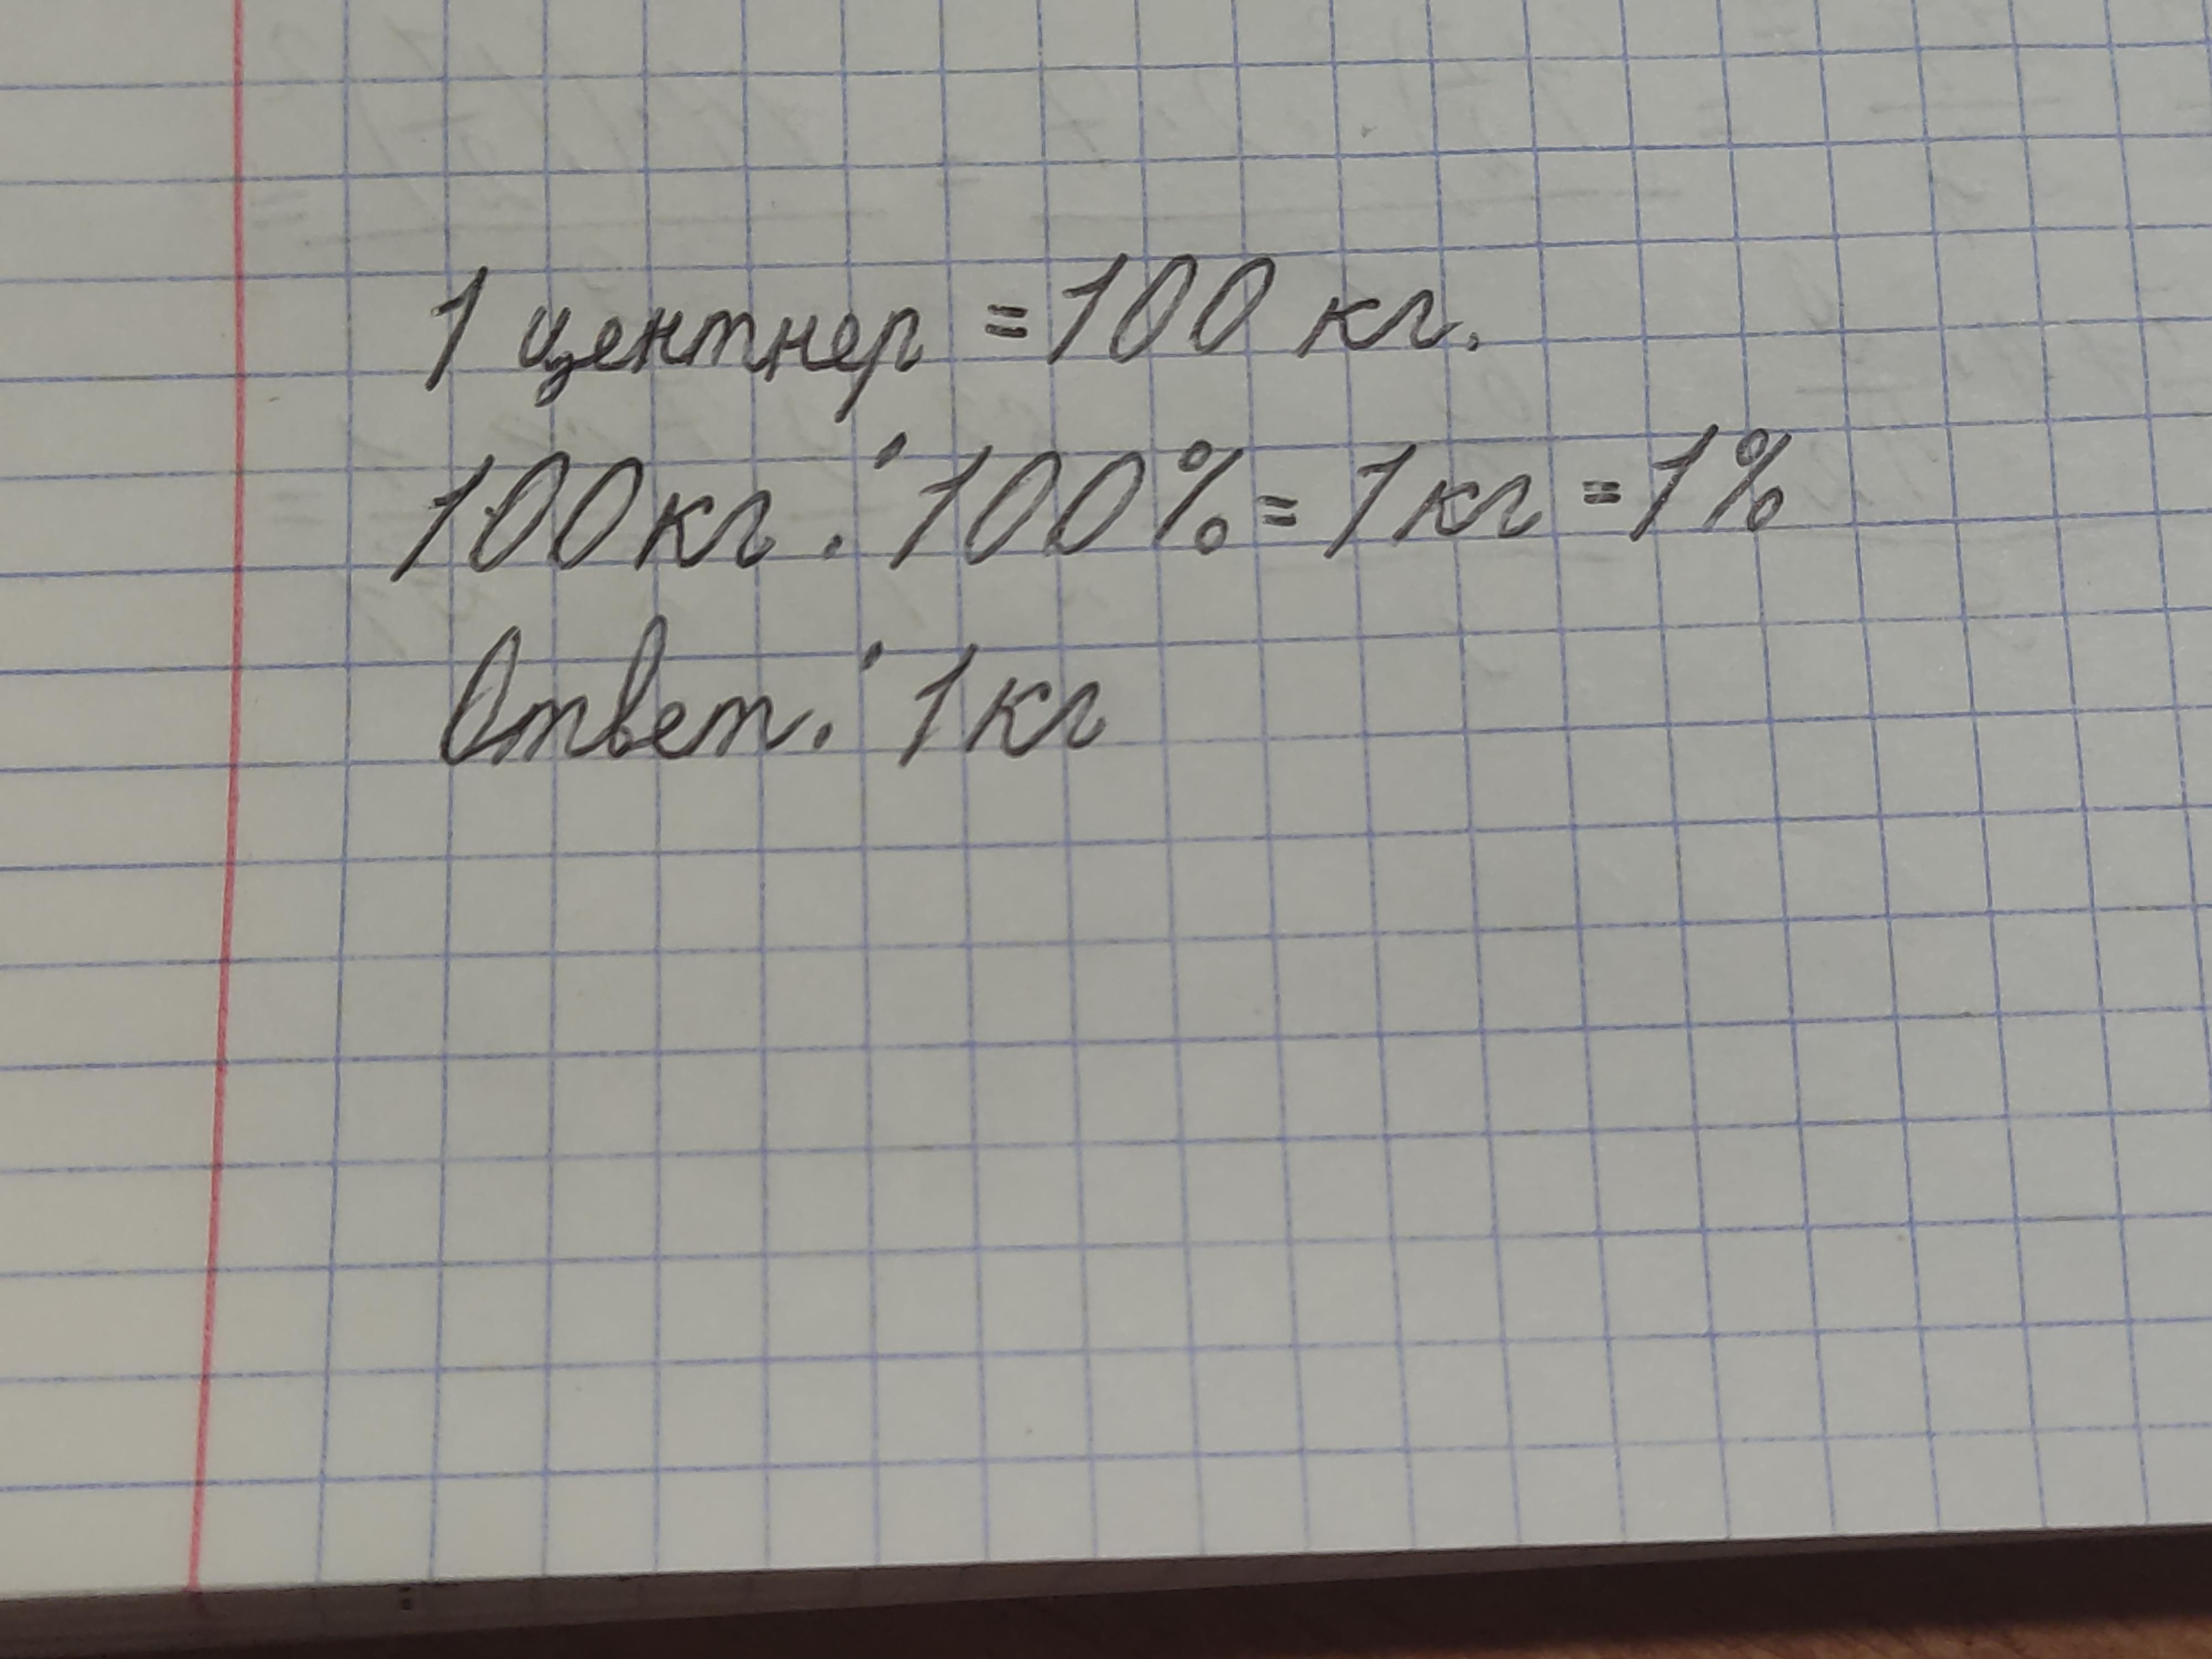 1 центнер = 100 кг.
100кг : 100% = 1кг = 1%
Ответ: 1кг